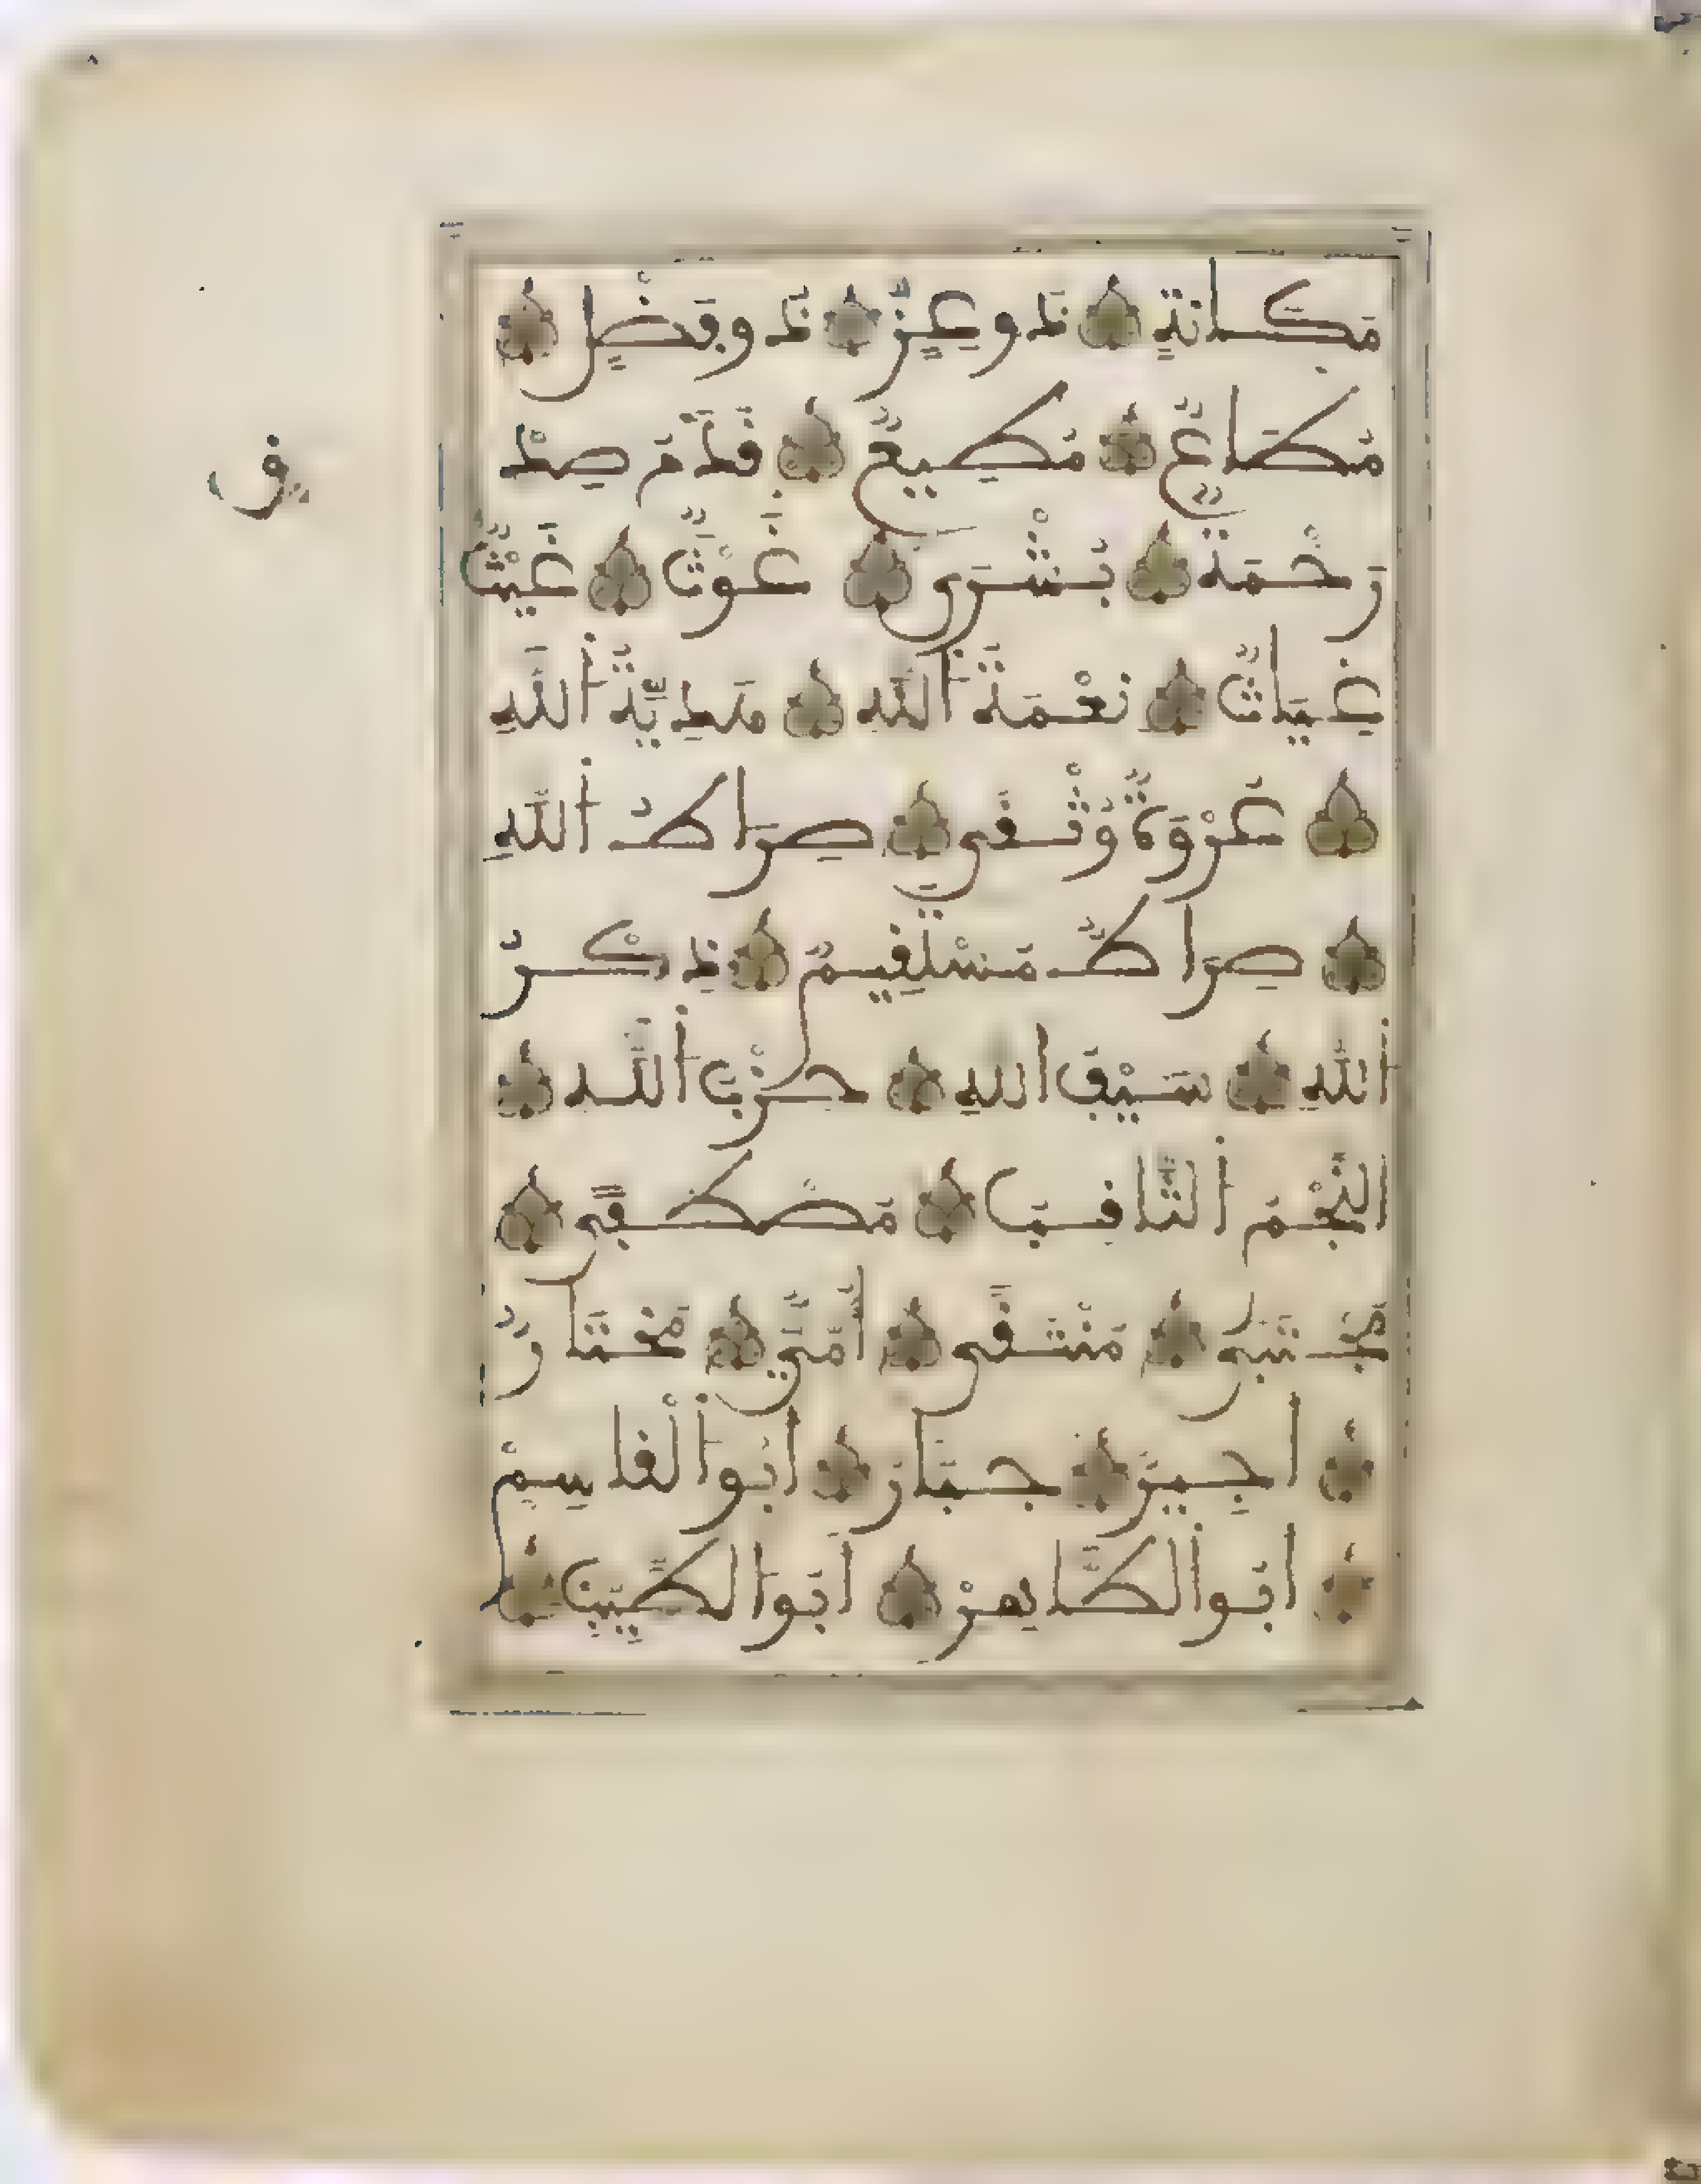 مَكَانَةٍ ذُو عِزٍّ ذُو فَضْلٍ
مُطَاعٌ مُطِيعٌ قَدَمُ صِدْ
قٍ
رَحْمَةٌ بُشْرَى غَوْثٌ غَيْثٌ
غِيَاثٌ نِعْمَةُ اللَّهِ هَدِيَّةُ اللَّهِ
عُرْوَةٌ وُثْقَى صِرَاطُ اللَّهِ
صِرَاطٌ مُسْتَقِيمٌ ذِكْرُ
اللَّهِ سَيْفُ اللَّهِ حِزْبُ اللَّهِ
النَّجْمُ الثَّاقِبُ مُصْطَفًى
مُجْتَبًى مُنْتَقًى أُمِّيٌّ مُخْتَارٌ
أَجِيرٌ جَبَّارٌ أَبُو الْقَاسِمِ
أَبُو الطَّاهِرِ أَبُو الطَّيِّبِ